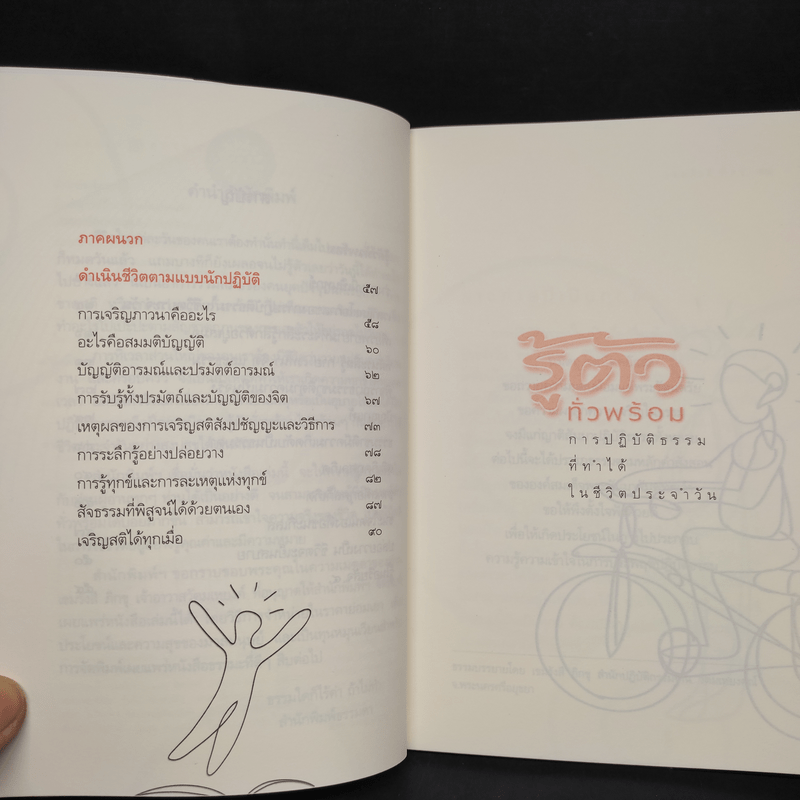 ภาคผนวก
ดำเนินชีวิตตามแบบนักปฏิบัติ ๕๗
การเจริญภาวนาคืออะไร ๕๘
อะไรคือสมมติบัญญัติ ๖๐
บัญญัติอารมณ์และปรมัตต์อารมณ์ ๖๒
การรับรู้ทั้งปรมัตถ์และบัญญัติของจิต ๖๗
เหตุผลของการเจริญสติสัมปชัญญะและวิธีการ ๗๓
การระลึกรู้อย่างปล่อยวาง ๗๘
การรู้ทุกข์และการละเหตุแห่งทุกข์ ๘๒
สัจธรรมที่พิสูจน์ได้ด้วยตนเอง ๘๗
เจริญสติได้ทุกเมื่อ ๙๐
รู้ตัว
ทั่วพร้อม
การปฏิบัติธรรม
ที่ทำได้
ในชีวิตประจำวัน